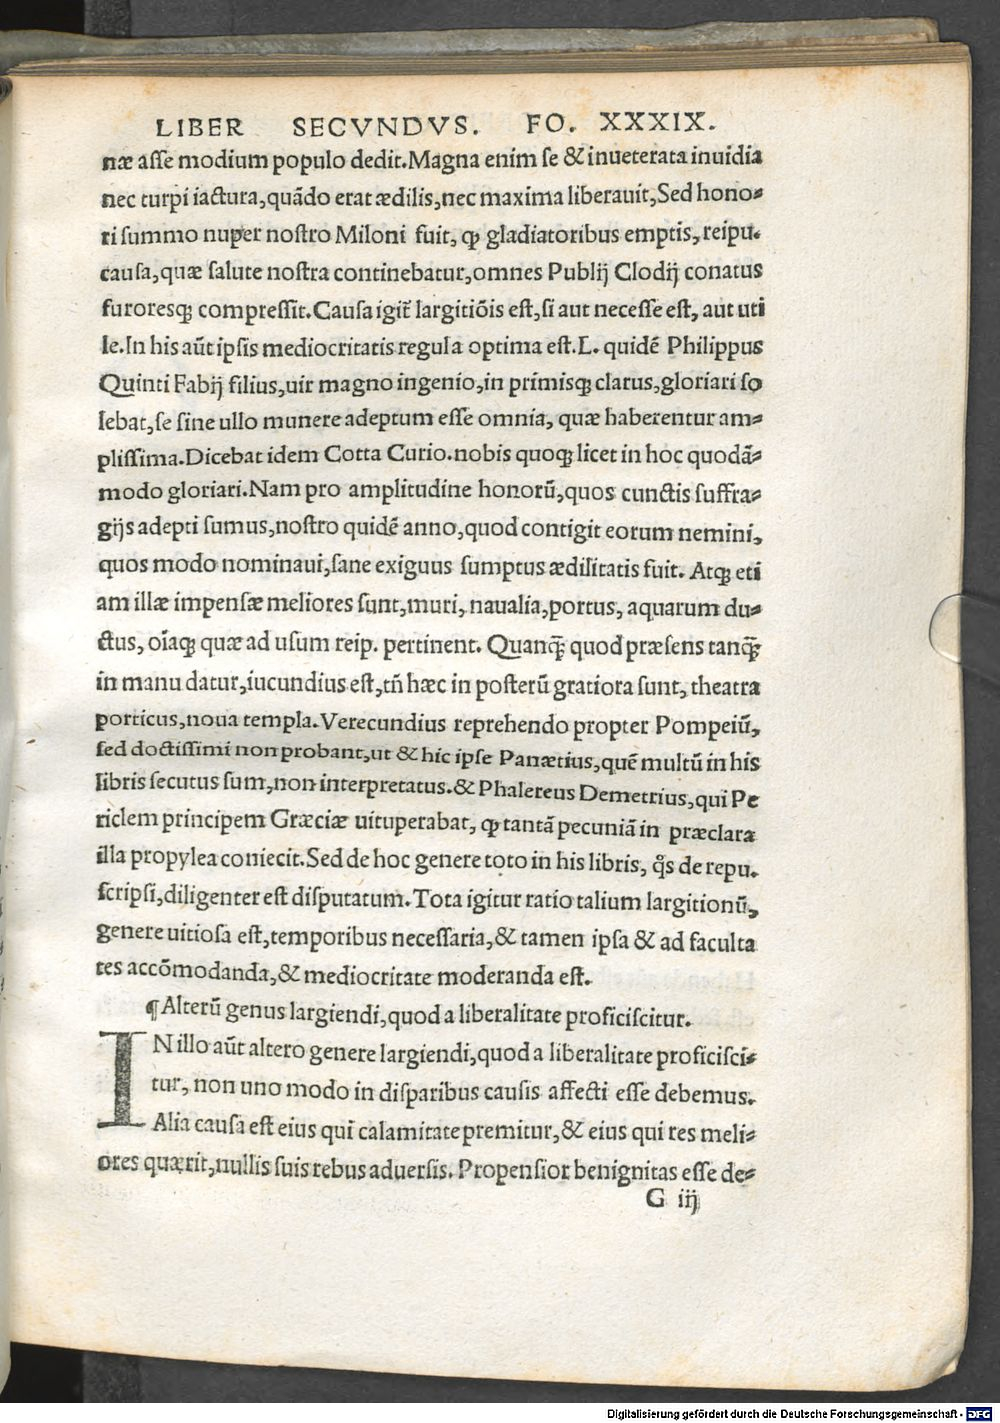 LIBER SECVNDVS. FO. XXXIX.
næ asse modium populo dedit.Magna enim se & inueterata inuidia
nec turpi iactura,quãdo erat ædilis,nec maxima liberauit,Sed hono-
ri summo nuper nostro Miloni fuit, ꝙ gladiatoribus emptis, reipu.
causa,quæ salute nostra continebatur,omnes Publij Clodij conatus
furoresqꝫ compressit.Causa igit̃ largitiõis est,si aut necesse est, aut uti
le.In his aũt ipsis mediocritatis regula optima est.L. quidẽ Philippus
Quinti Fabij filius,uir magno ingenio,in primisqꝫ clarus,gloriari so
lebat,se sine ullo munere adeptum esse omnia, quæ haberentur am-
plissima.Dicebat idem Cotta Curio.nobis quoqꝫ licet in hoc quodã-
modo gloriari.Nam pro amplitudine honorũ,quos cunctis suffra-
gijs adepti sumus,nostro quidẽ anno,quod contigit eorum nemini,
quos modo nominaui,sane exiguus sumptus ædilitatis fuit. Atqꝫ eti
am illæ impensæ meliores sunt,muri, naualia,portus, aquarum du-
ctus, oĩaqꝫ quæ ad usum reip. pertinent. Quanqꝫ̃ quod præsens tanqꝫ̃
in manu datur,iucundius est,tñ hæc in posterũ gratiora sunt, theatra
porticus,noua templa.Verecundius reprehendo propter Pompeiũ,
sed doctissimi non probant,ut & hic ipse Panætius,quẽ multũ in his
libris secutus sum,non interpretatus.& Phalereus Demetrius,qui Pe
riclem principem Græciæ uituperabat, ꝙ tantã pecuniã in præclara
illa propylea coniecit.Sed de hoc genere toto in his libris, q̊s de repu.
scripsi,diligenter est disputatum.Tota igitur ratio talium largitionũ,
genere uitiosa est,temporibus necessaria,& tamen ipsa & ad faculta
tes accõmodanda,& mediocritate moderanda est.
¶Alterũ genus largiendi,quod a liberalitate proficiscitur.
IN illo aũt altero genere largiendi,quod a liberalitate proficisci-
tur, non uno modo in disparibus causis affecti esse debemus.
Alia causa est eius qui calamitate premitur,& eius qui res meli-
ores quærit,nullis suis rebus aduersis. Propensior benignitas esse de-
G iij
Digitalisierung gefördert durch die Deutsche Forschungsgemeinschaft - DFG